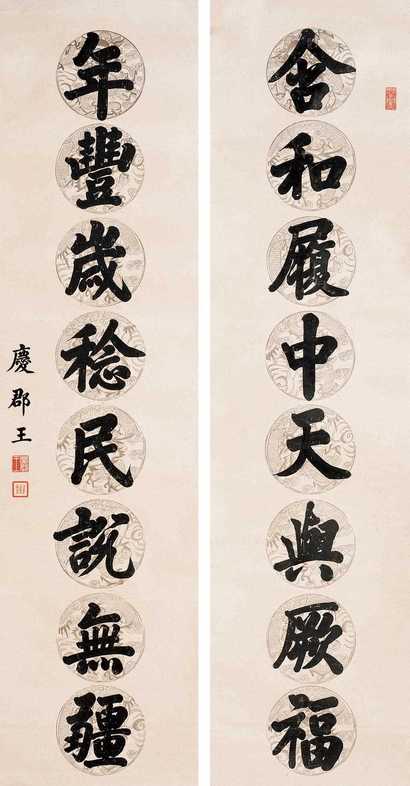 含和履中天與厥福
年豐歲稔民說無疆
慶郡王